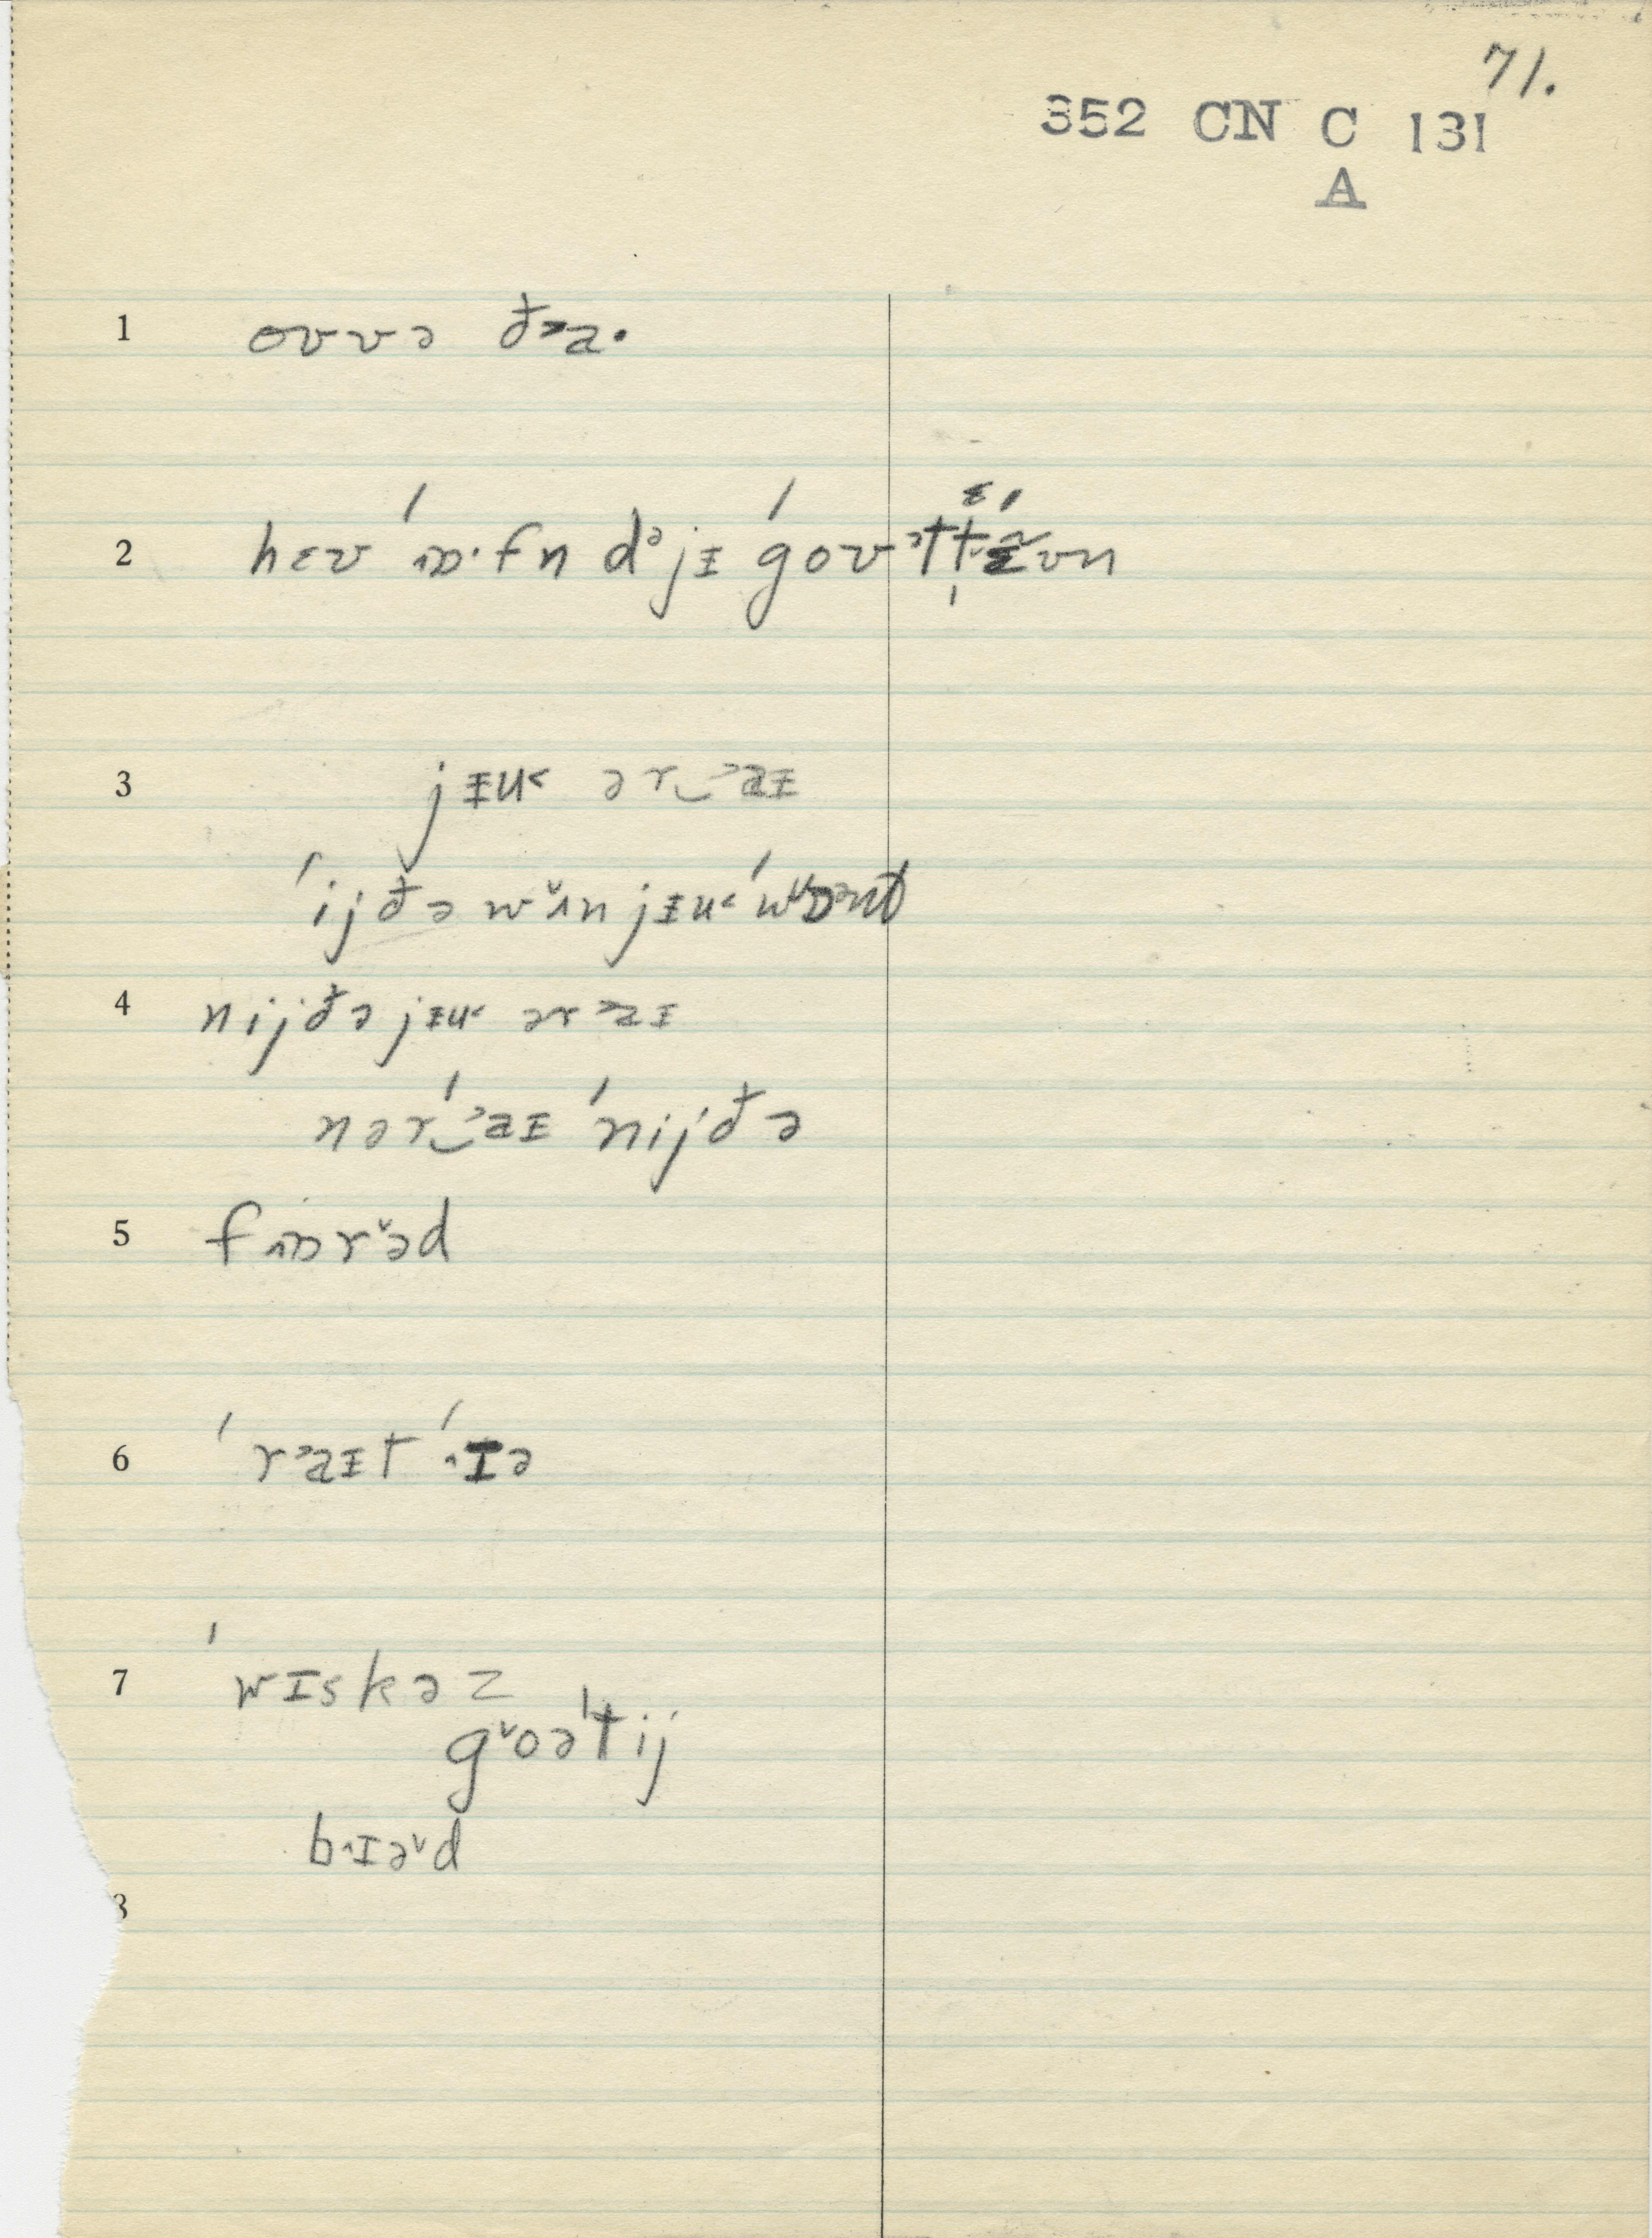 71.
352 CN C 131
A
1 ovvə ð˃a·
2 hɛv ˈɒ·fn dᵊjɪ ˈgov
3 jɪu˂ ər‿˃aɪ
ˈijðə wˇʌn jɪu˂
4 nijðə jɪu˂ ər ˃aɪ
nər‿ˈ˃aɪ ˈnijðə
5 f˄ɒrˇəd
6 ˈr˃aɪt ˈ˄ɪə
7 ˈwɪskəz
gˇoətij
b˄ɪəˇd
8